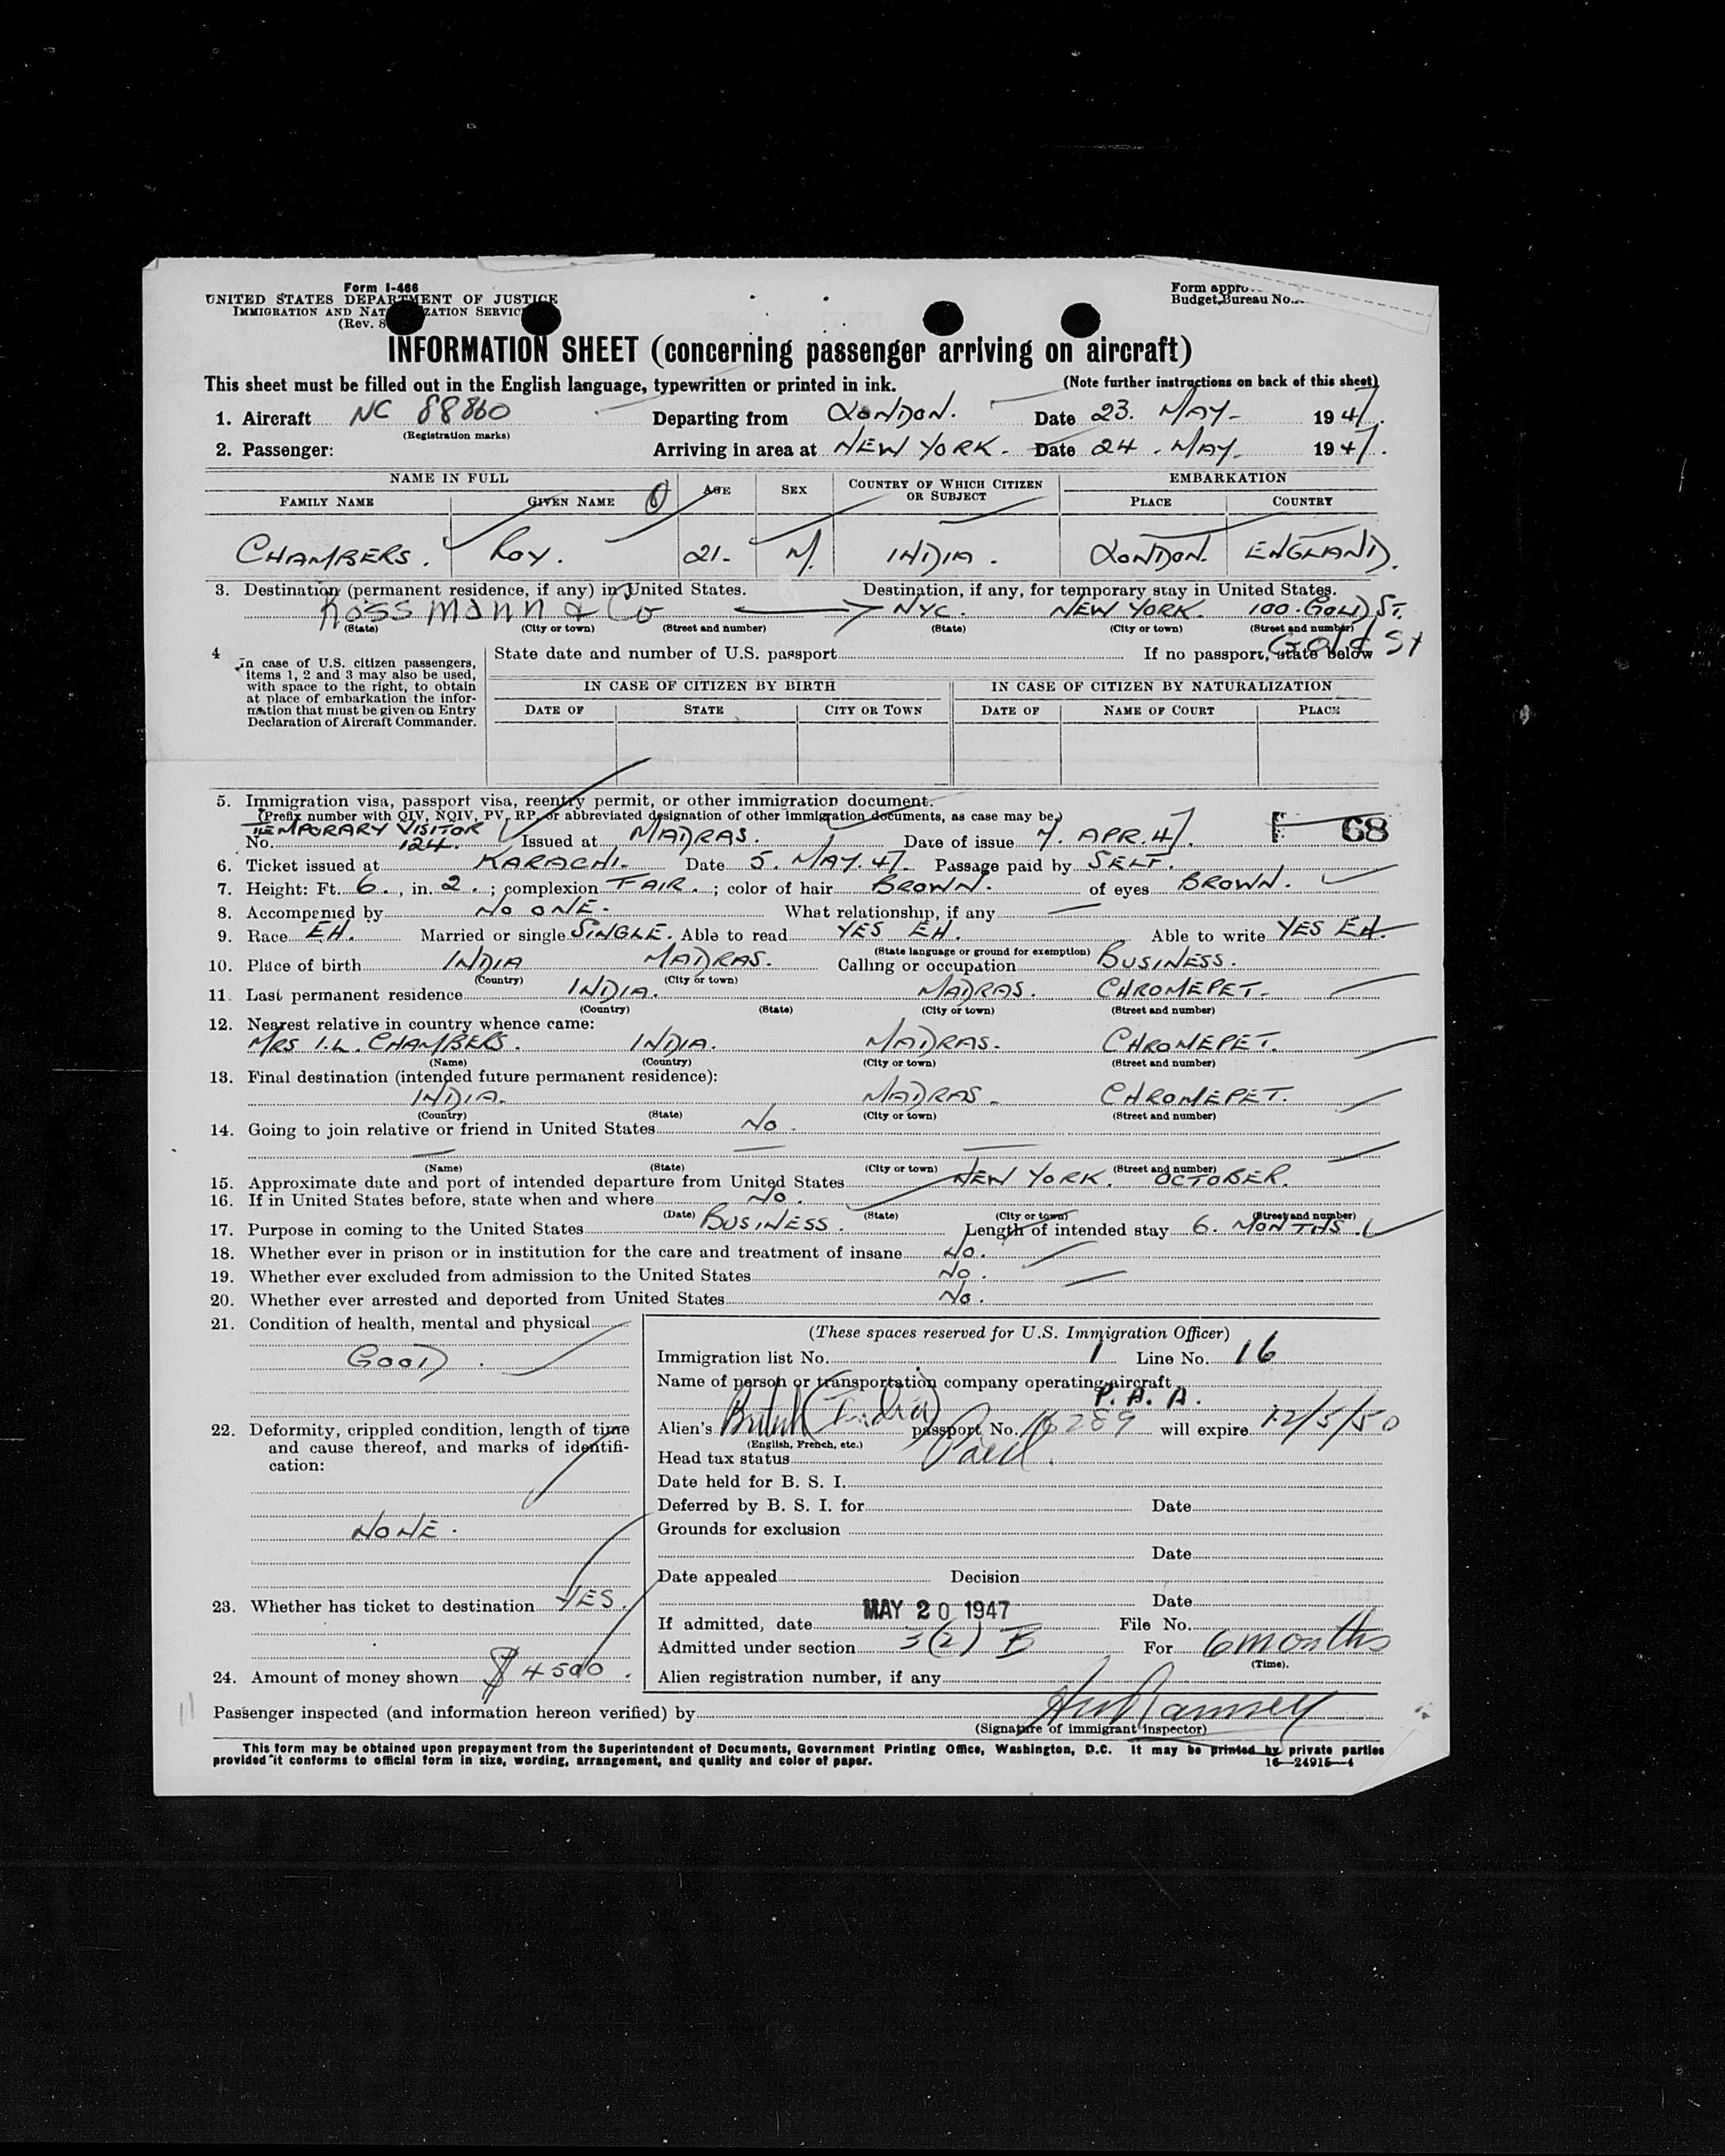 Form I-466
UNITED STATES DEPARTMENT OF JUSTICE
IMMIGRATION AND NAT ZATION SERVIC
(Rev. 8
Form appro
Budget Bureau No.
INFORMATION SHEET (concerning passenger arriving on aircraft)
This sheet must be filled out in the English language, typewritten or printed in ink. (Note further instructions on back of this sheet)
1. Aircraft NC 88860 Departing from LONDON. Date 23. MAY- 1947.
(Registration marks)
2. Passenger: Arriving in area at NEW YORK. Date 24. MAY. 1947.
NAME IN FULL AGE SEX COUNTRY OF WHICH CITIZEN OR SUBJECT EMBARKATION
FAMILY NAME GIVEN NAME PLACE COUNTRY
CHAMBERS. ROY. 21. M. INDIA. LONDON. ENGLAND.
3. Destination (permanent residence, if any) in United States. Destination, if any, for temporary stay in United States.
Rossmann & Co NYC. NEW YORK. 100. GOLD ST.
(State) (City or town) (Street and number) (State) (City or town) (Street and number)
Gold St
4 In case of U.S. citizen passengers, items 1, 2 and 3 may also be used, with space to the right, to obtain at place of embarkation the information that must be given on Entry Declaration of Aircraft Commander.
State date and number of U.S. passport If no passport, state below
IN CASE OF CITIZEN BY BIRTH IN CASE OF CITIZEN BY NATURALIZATION
DATE OF STATE CITY OR TOWN DATE OF NAME OF COURT PLACE
5. Immigration visa, passport visa, reentry permit, or other immigration document.
(Prefix number with QIV, NQIV, PV, RP, or abbreviated designation of other immigration documents, as case may be.)
TEMPORARY VISITOR
No. 124. Issued at MADRAS. Date of issue 7. APR. 47. 68
6. Ticket issued at KARACHI. Date 5. MAY. 47. Passage paid by SELF.
7. Height: Ft. 6., in. 2.; complexion FAIR.; color of hair BROWN. of eyes BROWN.
8. Accompanied by NO ONE. What relationship, if any —
9. Race EH. Married or single SINGLE. Able to read YES EH. Able to write YES EH.
(State language or ground for exemption)
10. Place of birth INDIA MADRAS. Calling or occupation BUSINESS.
(Country) (City or town)
11. Last permanent residence INDIA. MADRAS. CHROMEPET.
(Country) (State) (City or town) (Street and number)
12. Nearest relative in country whence came:
MRS I.L. CHAMBERS. INDIA. MADRAS. CHROMEPET.
(Name) (Country) (City or town) (Street and number)
13. Final destination (intended future permanent residence):
INDIA. MADRAS. CHROMEPET.
(Country) (State) (City or town) (Street and number)
14. Going to join relative or friend in United States No.
(Name) (State) (City or town) (Street and number)
15. Approximate date and port of intended departure from United States NEW YORK. OCTOBER.
16. If in United States before, state when and where No.
(Date) (State) (City or town) (Street and number)
17. Purpose in coming to the United States BUSINESS. Length of intended stay 6. MONTHS.
18. Whether ever in prison or in institution for the care and treatment of insane No.
19. Whether ever excluded from admission to the United States No.
20. Whether ever arrested and deported from United States No.
21. Condition of health, mental and physical
GOOD.
22. Deformity, crippled condition, length of time
and cause thereof, and marks of identifi-
cation:
NONE.
23. Whether has ticket to destination YES.
24. Amount of money shown $4500.
(These spaces reserved for U.S. Immigration Officer)
Immigration list No. 1 Line No. 16
Name of person or transportation company operating aircraft
P. A. A.
Alien's British (India) passport No. 16289 will expire 12/5/50
(English, French, etc.)
Head tax status Paid.
Date held for B. S. I.
Deferred by B. S. I. for Date
Grounds for exclusion
Date
Date appealed Decision
Date
If admitted, date MAY 20 1947 File No.
Admitted under section 3(2) B For 6 months
(Time).
Alien registration number, if any
Passenger inspected (and information hereon verified) by Ramsey
(Signature of immigrant inspector)
This form may be obtained upon prepayment from the Superintendent of Documents, Government Printing Office, Washington, D.C. It may be printed by private parties
provided it conforms to official form in size, wording, arrangement, and quality and color of paper. 16—24915-4